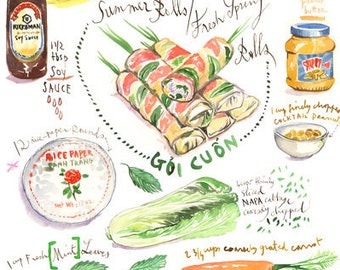 Summer Rolls/
Fresh Spring
Rolls
KIKKOMAN
SOY SAUCE
1 1/2
tbsp
SOY
SAUCE
butter
1 cup finely chopped
COCKTAIL peanuts
12 rice-paper Rounds
RICE PAPER
BANH TRANG
GỎI CUỐN
thinly
sliced
NAPA cabbage
coarsely chopped
1 cup Fresh [Mint] Leaves
2 3/4 cups coarsely grated carrot